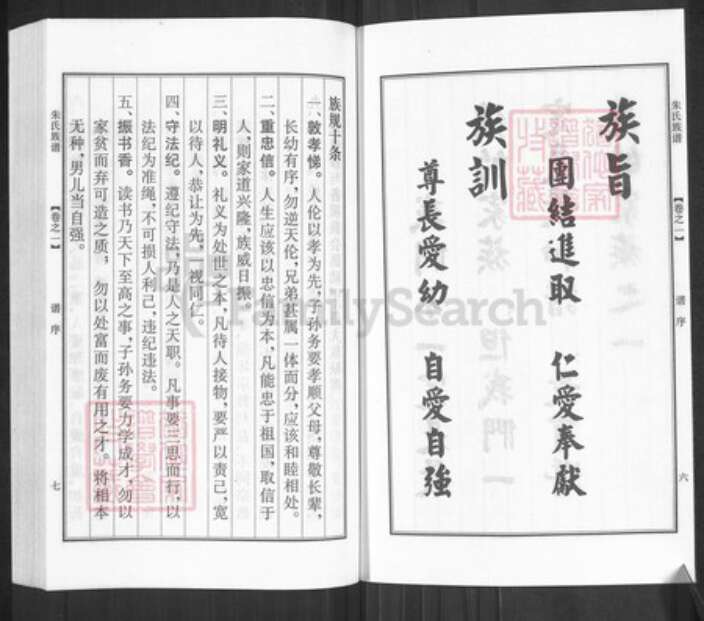 朱氏族谱
【卷之一】
谱序
六
族旨
團結進取 仁愛奉献
族訓
尊長愛幼 自愛自強
族规十条
一、敦孝悌。人伦以孝为先，子孙务要孝顺父母，尊敬长辈，
长幼有序，勿逆天伦，兄弟甚属一体而分，应该和睦相处。
二、重忠信。人生应该以忠信为本，凡能忠于祖国，取信于
人，则家道兴隆，族威日振。
三、明礼义。礼义为处世之本，凡待人接物，要严以责己，宽
以待人，恭让为先，一视同仁。
四、守法纪。遵纪守法，乃是人之天职。凡事要三思而行，以
法纪为准绳，不可损人利己，违纪违法。
五、振书香。读书乃天下至高之事，子孙务要力学成才，勿以
家贫而弃可造之质，勿以处富而废有用之才。将相本
无种，男儿当自强。
朱氏族谱
【卷之一】
谱序
七
FamilySearch